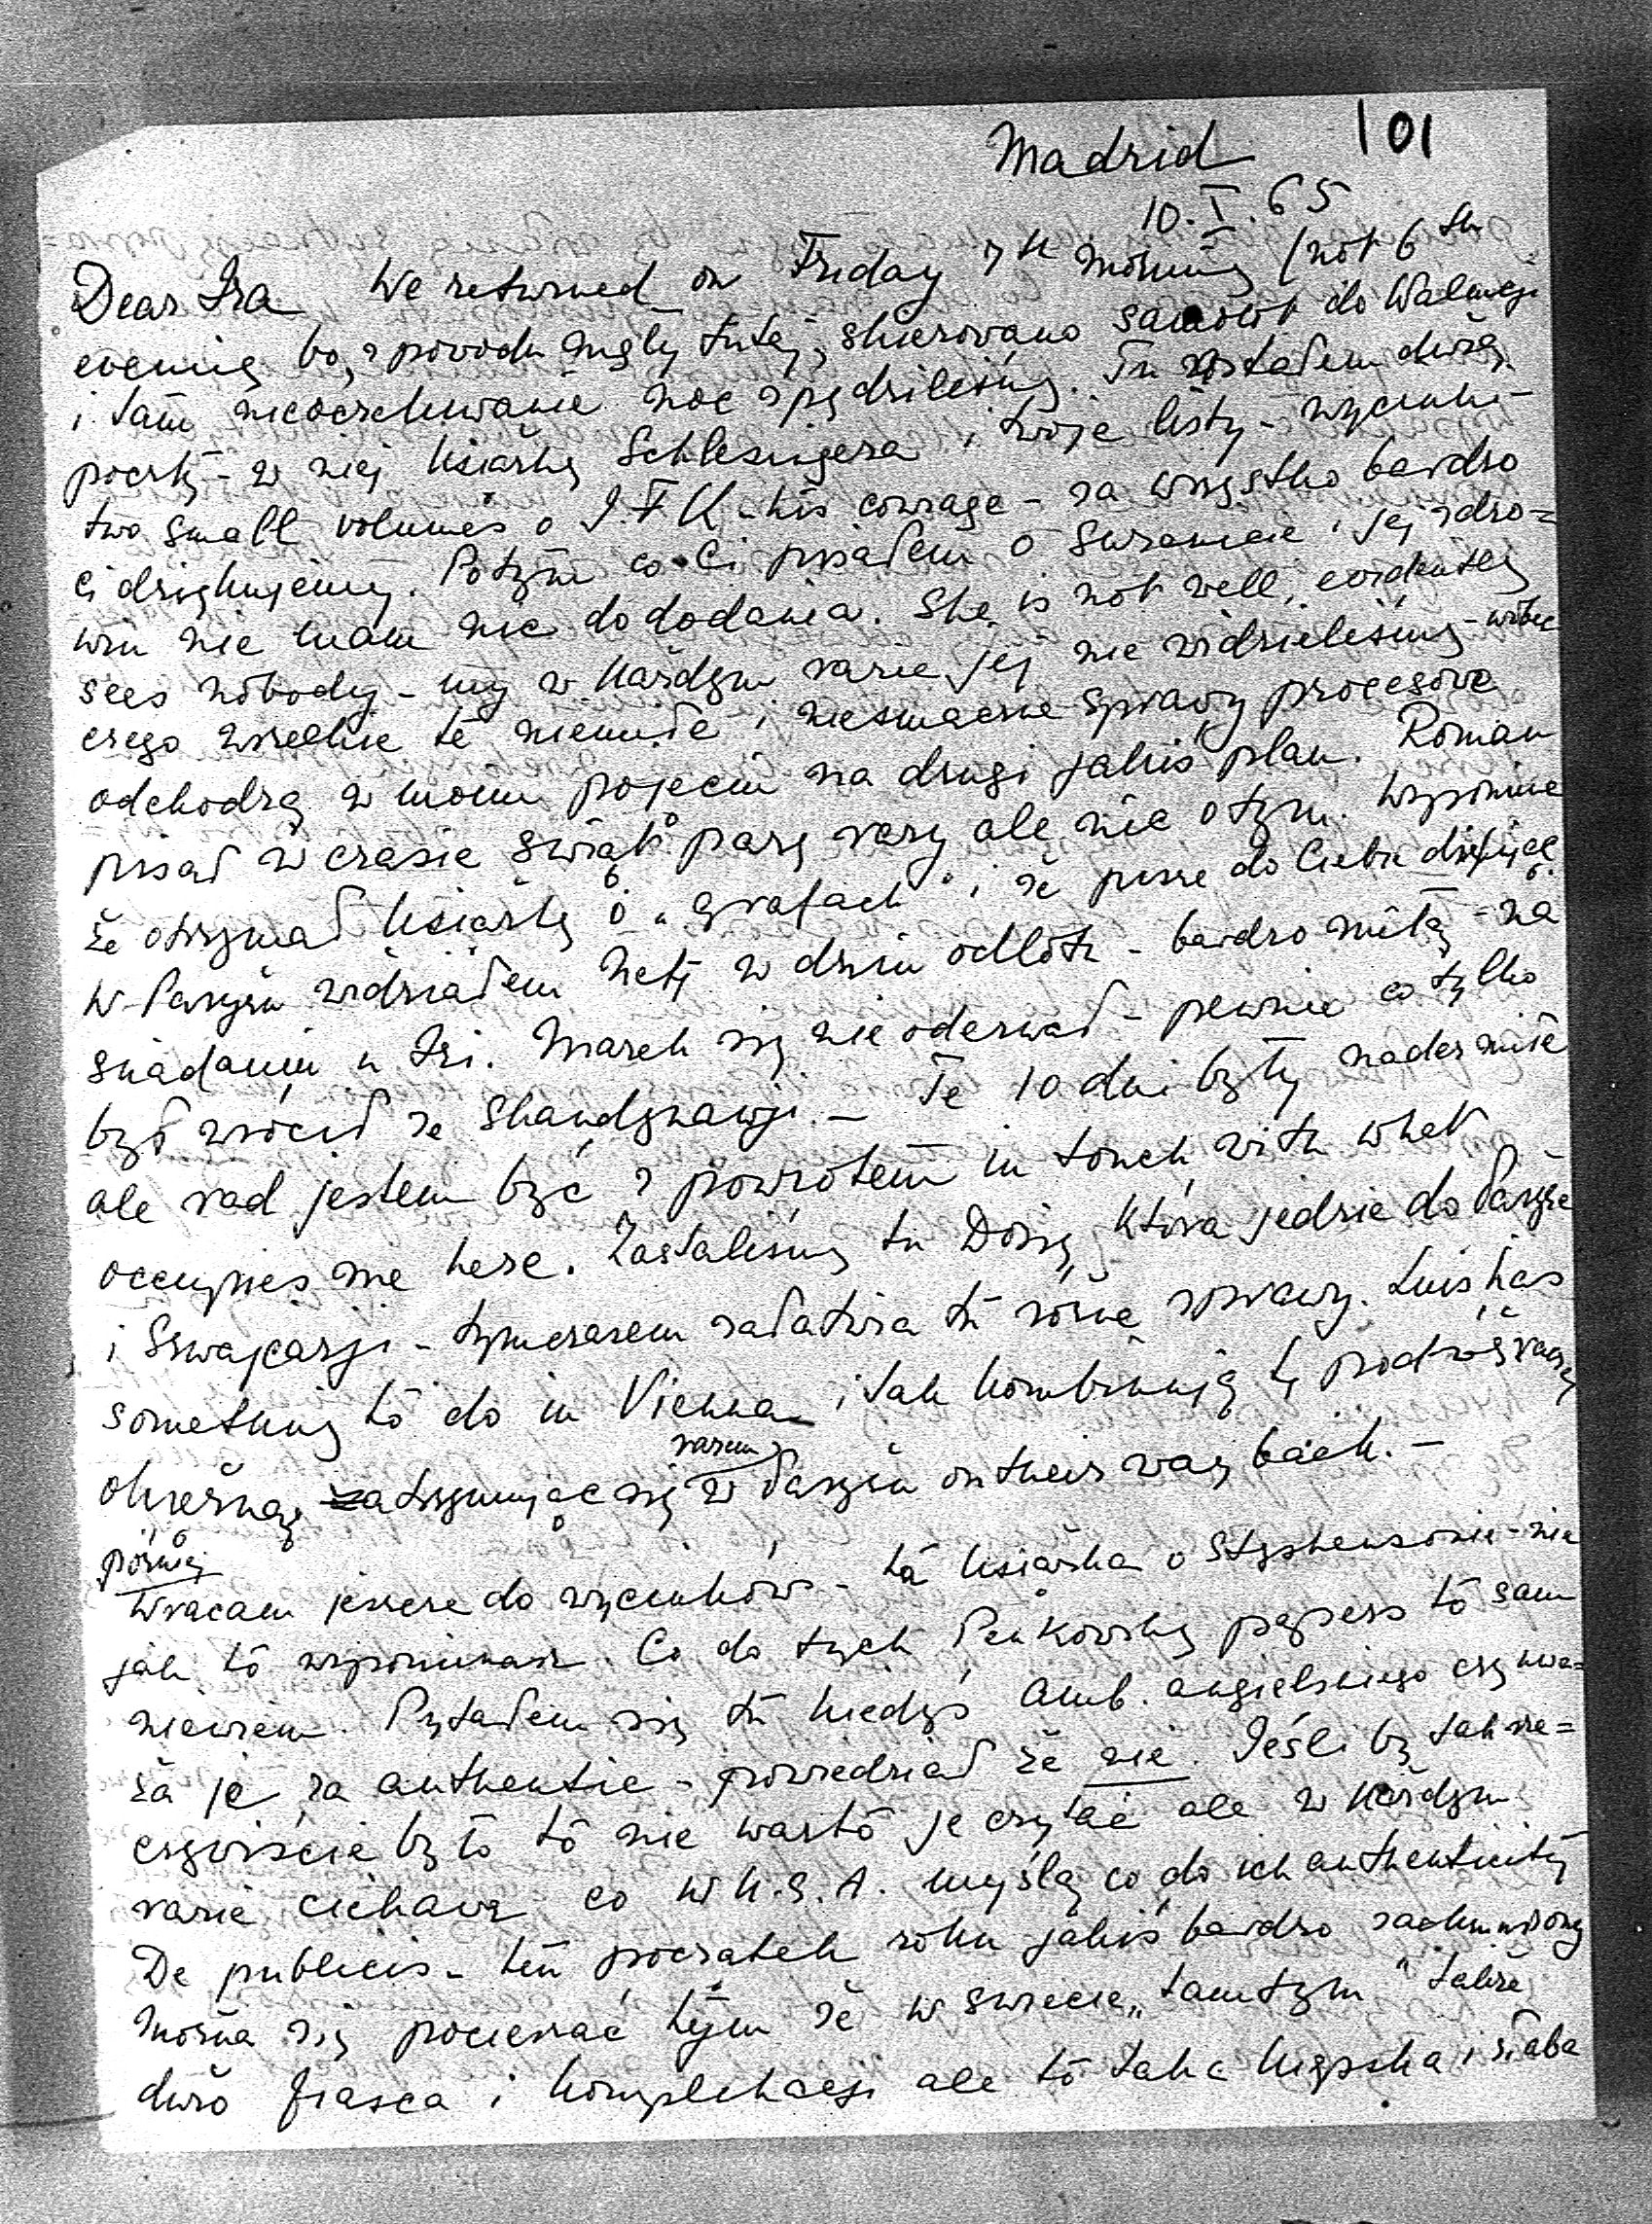 101
Madrid
10.I.65
Dear Ira We returned on Friday 7th morning (not 6th
evening bo, z powodu mgły tutej, skierowano samolot do Walencji
i tam nieoczekiwanie noc spędziliśmy. Tu zastałem dużą
pocztę - w niej książkę Schlesingera i twoje listy - wycinki -
two small volumes o J.F.K - his courage - za wszystko bardzo
Ci dziękujemy. Po tym co Ci pisałem o Suzannie i jej zdro=
wiu nie mam nic do dodania. She is not well, evidently
sees nobody - my w każdym razie jej nie widzieliśmy - wobec
czego wszelkie te niemiłe i niesmaczne sprawy procesowe
odchodzą w moim pojęciu na drugi jakiś plan. Roman
pisał w czasie świąt parę razy ale nic o tym. Wspomina
że otrzymał książkę o "grafach" i że pisze do Ciebie dziękując.
W Paryżu widziałem Netę w dniu odlotu - bardzo miłą - na
śniadaniu u Iri. Marek się nie oderwał - pewnie co tylko
był wrócił ze Skandynawji. - Te 10 dni były nader miłe
ale rad jestem być z powrotem in touch with what
occupies me here. Zastaliśmy tu Dosię, która jedzie do Paryża
i Szwajcarji - tymczasem załatwia tu różne sprawy. Luis has
something to do in Vienna i tak kombinują tę podróż raczej
okrężną zatrzymując się razem w Paryżu on their way back. -
później
Wracam jeszcze do wycinków - ta książka o Stephensonie - nie
jak to wspominasz. Co do tych Penkovsky papers to sam
nie wiem. Pytałem się tu kiedyś Amb. angielskiego czy uwa=
ża je za authentic - powiedział że nie. Jeśli by tak rze=
czywiście było to nie warto je czytać ale w każdym
razie ciekawe co w U.S.A. myślą co do ich authenticity
De publicis - ten początek roku jakiś bardzo zachmurzony
Można się pocieszać tym że w świecie "tamtym" także
dużo fiasca i komplikacji ale to taka kiepska i słaba